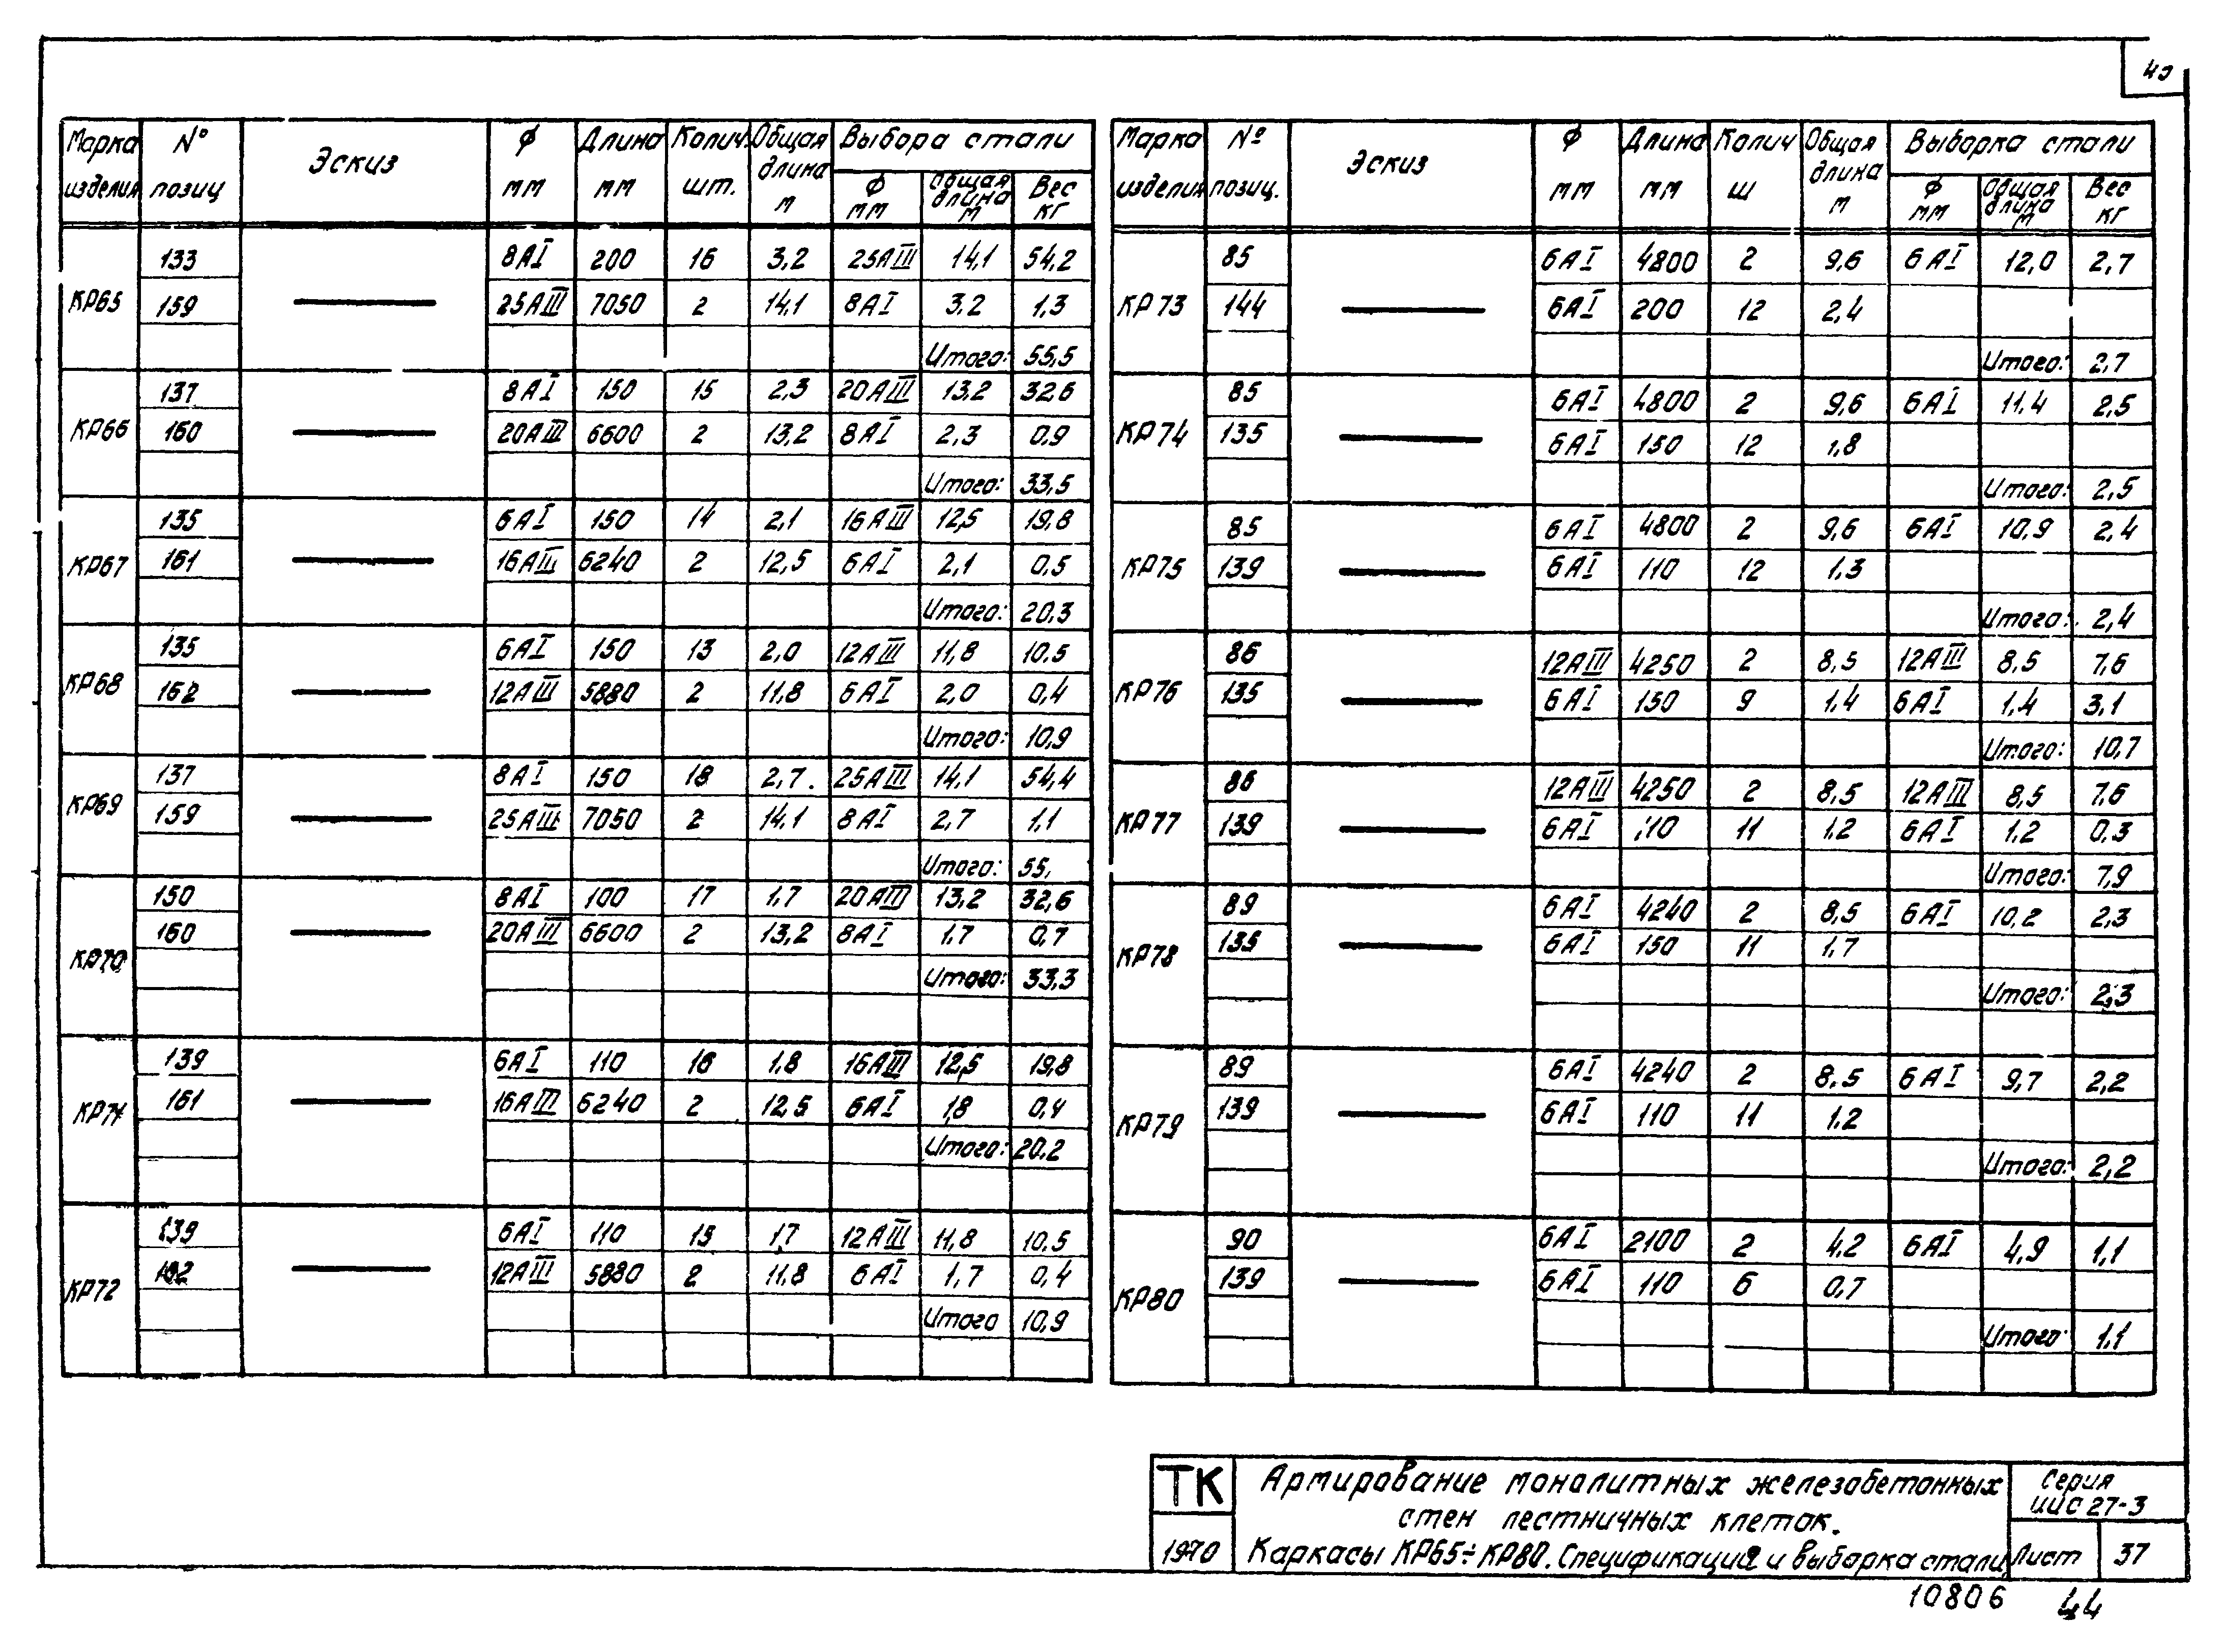 40
Марка изделия | № позиц | Эскиз | Ф мм | Длина мм | Колич. шт. | Общая длина м | Выбора стали | Ф мм | Общая длина м | Вес кг
КР65
133 | 8АI | 200 | 16 | 3,2 | 25АIII | 14,1 | 54,2
159 | 25АIII | 7050 | 2 | 14,1 | 8АI | 3,2 | 1,3
Итого: 55,5
КР66
137 | 8АI | 150 | 15 | 2,3 | 20АIII | 13,2 | 32,6
160 | 20АIII | 6600 | 2 | 13,2 | 8АI | 2,3 | 0,9
Итого: 33,5
КР67
135 | 6АI | 150 | 14 | 2,1 | 16АIII | 12,5 | 19,8
161 | 16АIII | 6240 | 2 | 12,5 | 6АI | 2,1 | 0,5
Итого: 20,3
КР68
135 | 6АI | 150 | 13 | 2,0 | 12АIII | 11,8 | 10,5
162 | 12АIII | 5880 | 2 | 11,8 | 6АI | 2,0 | 0,4
Итого: 10,9
КР69
137 | 8АI | 150 | 18 | 2,7 | 25АIII | 14,1 | 54,4
159 | 25АIII | 7050 | 2 | 14,1 | 8АI | 2,7 | 1,1
Итого: 55,
КР70
150 | 8АI | 100 | 17 | 1,7 | 20АIII | 13,2 | 32,6
160 | 20АIII | 6600 | 2 | 13,2 | 8АI | 1,7 | 0,7
Итого: 33,3
КР71
139 | 6АI | 110 | 16 | 1,8 | 16АIII | 12,5 | 19,8
161 | 16АIII | 6240 | 2 | 12,5 | 6АI | 1,8 | 0,4
Итого: 20,2
КР72
139 | 6АI | 110 | 15 | 1,7 | 12АIII | 11,8 | 10,5
162 | 12АIII | 5880 | 2 | 11,8 | 6АI | 1,7 | 0,4
Итого 10,9
Марка изделия | № позиц. | Эскиз | Ф мм | Длина мм | Колич ш | Общая длина м | Выборка стали | Ф мм | Общая длина м | Вес кг
КР73
85 | 6АI | 4800 | 2 | 9,6 | 6АI | 12,0 | 2,7
144 | 6АI | 200 | 12 | 2,4
Итого: 2,7
КР74
85 | 6АI | 4800 | 2 | 9,6 | 6АI | 11,4 | 2,5
135 | 6АI | 150 | 12 | 1,8
Итого: 2,5
КР75
85 | 6АI | 4800 | 2 | 9,6 | 6АI | 10,9 | 2,4
139 | 6АI | 110 | 12 | 1,3
Итого: 2,4
КР76
86 | 12АIII | 4250 | 2 | 8,5 | 12АIII | 8,5 | 7,6
135 | 6АI | 150 | 9 | 1,4 | 6АI | 1,4 | 3,1
Итого: 10,7
КР77
86 | 12АIII | 4250 | 2 | 8,5 | 12АIII | 8,5 | 7,6
139 | 6АI | 110 | 11 | 1,2 | 6АI | 1,2 | 0,3
Итого: 7,9
КР78
89 | 6АI | 4240 | 2 | 8,5 | 6АI | 10,2 | 2,3
135 | 6АI | 150 | 11 | 1,7
Итого: 2,3
КР79
89 | 6АI | 4240 | 2 | 8,5 | 6АI | 9,7 | 2,2
139 | 6АI | 110 | 11 | 1,2
Итого: 2,2
КР80
90 | 6АI | 2100 | 2 | 4,2 | 6АI | 4,9 | 1,1
139 | 6АI | 110 | 6 | 0,7
Итого 1,1
ТК
1970
Армирование монолитных железобетонных
стен лестничных клеток.
Каркасы КР65÷КР80. Спецификация и выборка стали.
Серия
ИИС 27-3
Лист 37
10806 44